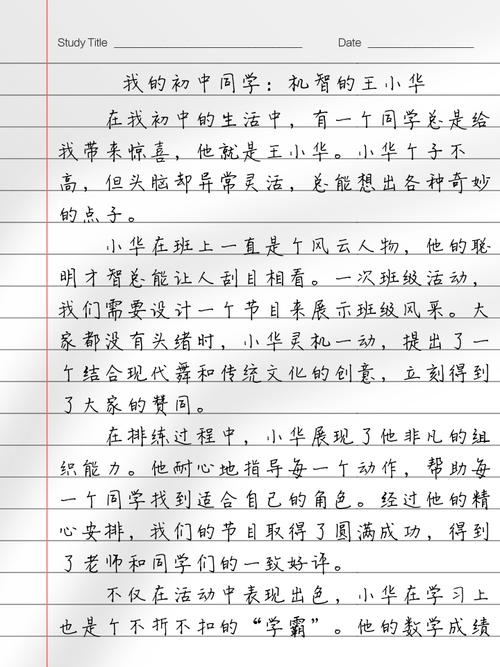 Study Title
Date
我的初中同学：机智的王小华
在我初中的生活中，有一个同学总是给
我带来惊喜，他就是王小华。小华个子不
高，但头脑却异常灵活，总能想出各种奇妙
的点子。
小华在班上一直是个风云人物，他的聪
明才智总能让人刮目相看。一次班级活动，
我们需要设计一个节目来展示班级风采。大
家都没有头绪时，小华灵机一动，提出了一
个结合现代舞和传统文化的创意，立刻得到
了大家的赞同。
在排练过程中，小华展现了他非凡的组
织能力。他耐心地指导每一个动作，帮助每
一个同学找到适合自己的角色。经过他的精
心安排，我们的节目取得了圆满成功，得到
了老师和同学们的一致好评。
不仅在活动中表现出色，小华在学习上
也是个不折不扣的“学霸”。他的数学成绩